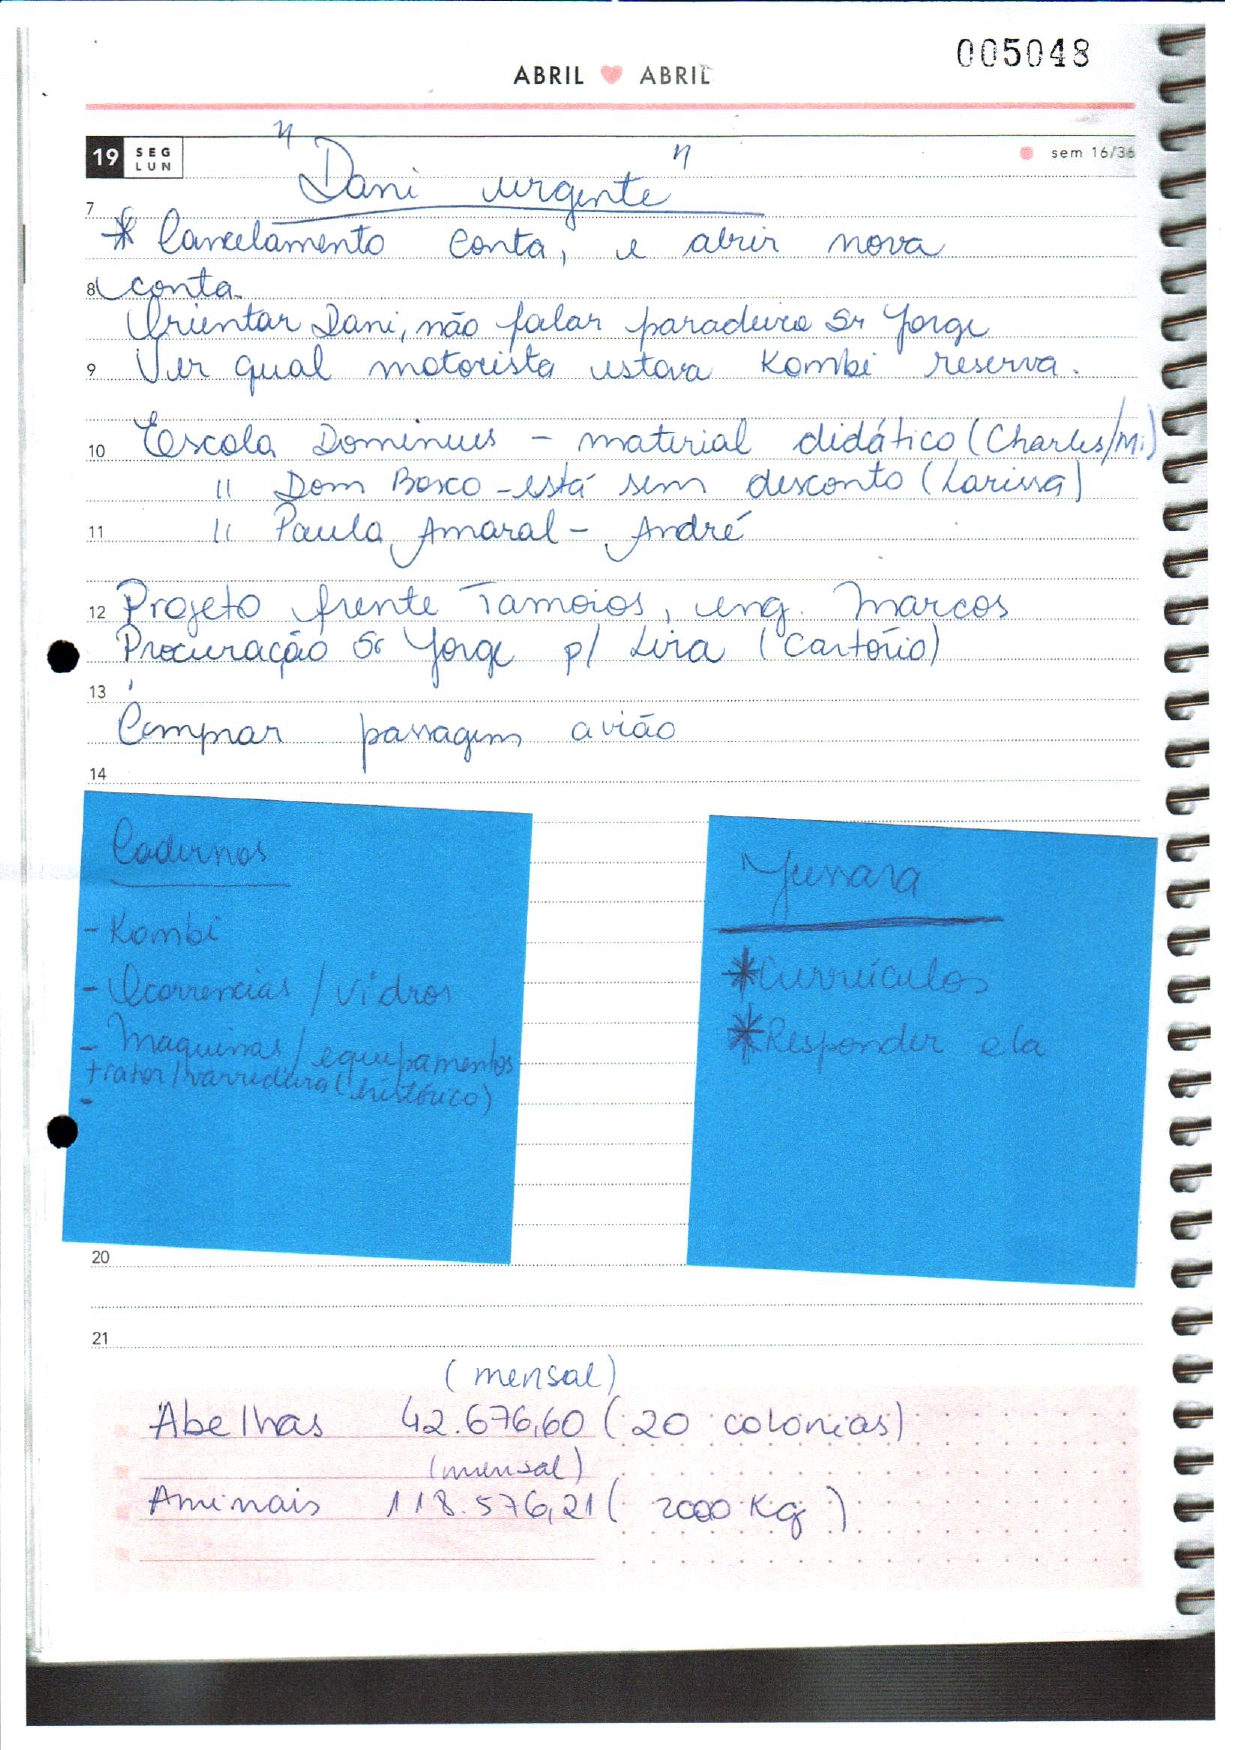 005048
ABRIL ABRIL
19 SEG LUN
sem 16/36
"Dani urgente"
7
* Cancelamento conta, e abrir nova
8 conta.
Orientar Dani, não falar paradeiro Sr Jorge
9 Ver qual motorista estava Kombi reserva.
10 Escola Dominus - material didático (Charles/Mi)
" Dom Bosco - está sem desconto (Larissa)
11 " Paula Amaral - André
12 Projeto frente Tamoios, eng. Marcos
Procuração Sr Jorge p/ Lira (Cartório)
13
Comprar passagem avião
14
Cadernos
- Kombi
- Ocorrencias / vidros
- Maquinas / equipamentos
trator/varredura (histórico)
-
Jussara
* Currículos
* Responder ela
20
21
(mensal)
Abelhas 42.676,60 (20 colonias)
(mensal)
Aminais 118.576,21 ( 2000 Kg )